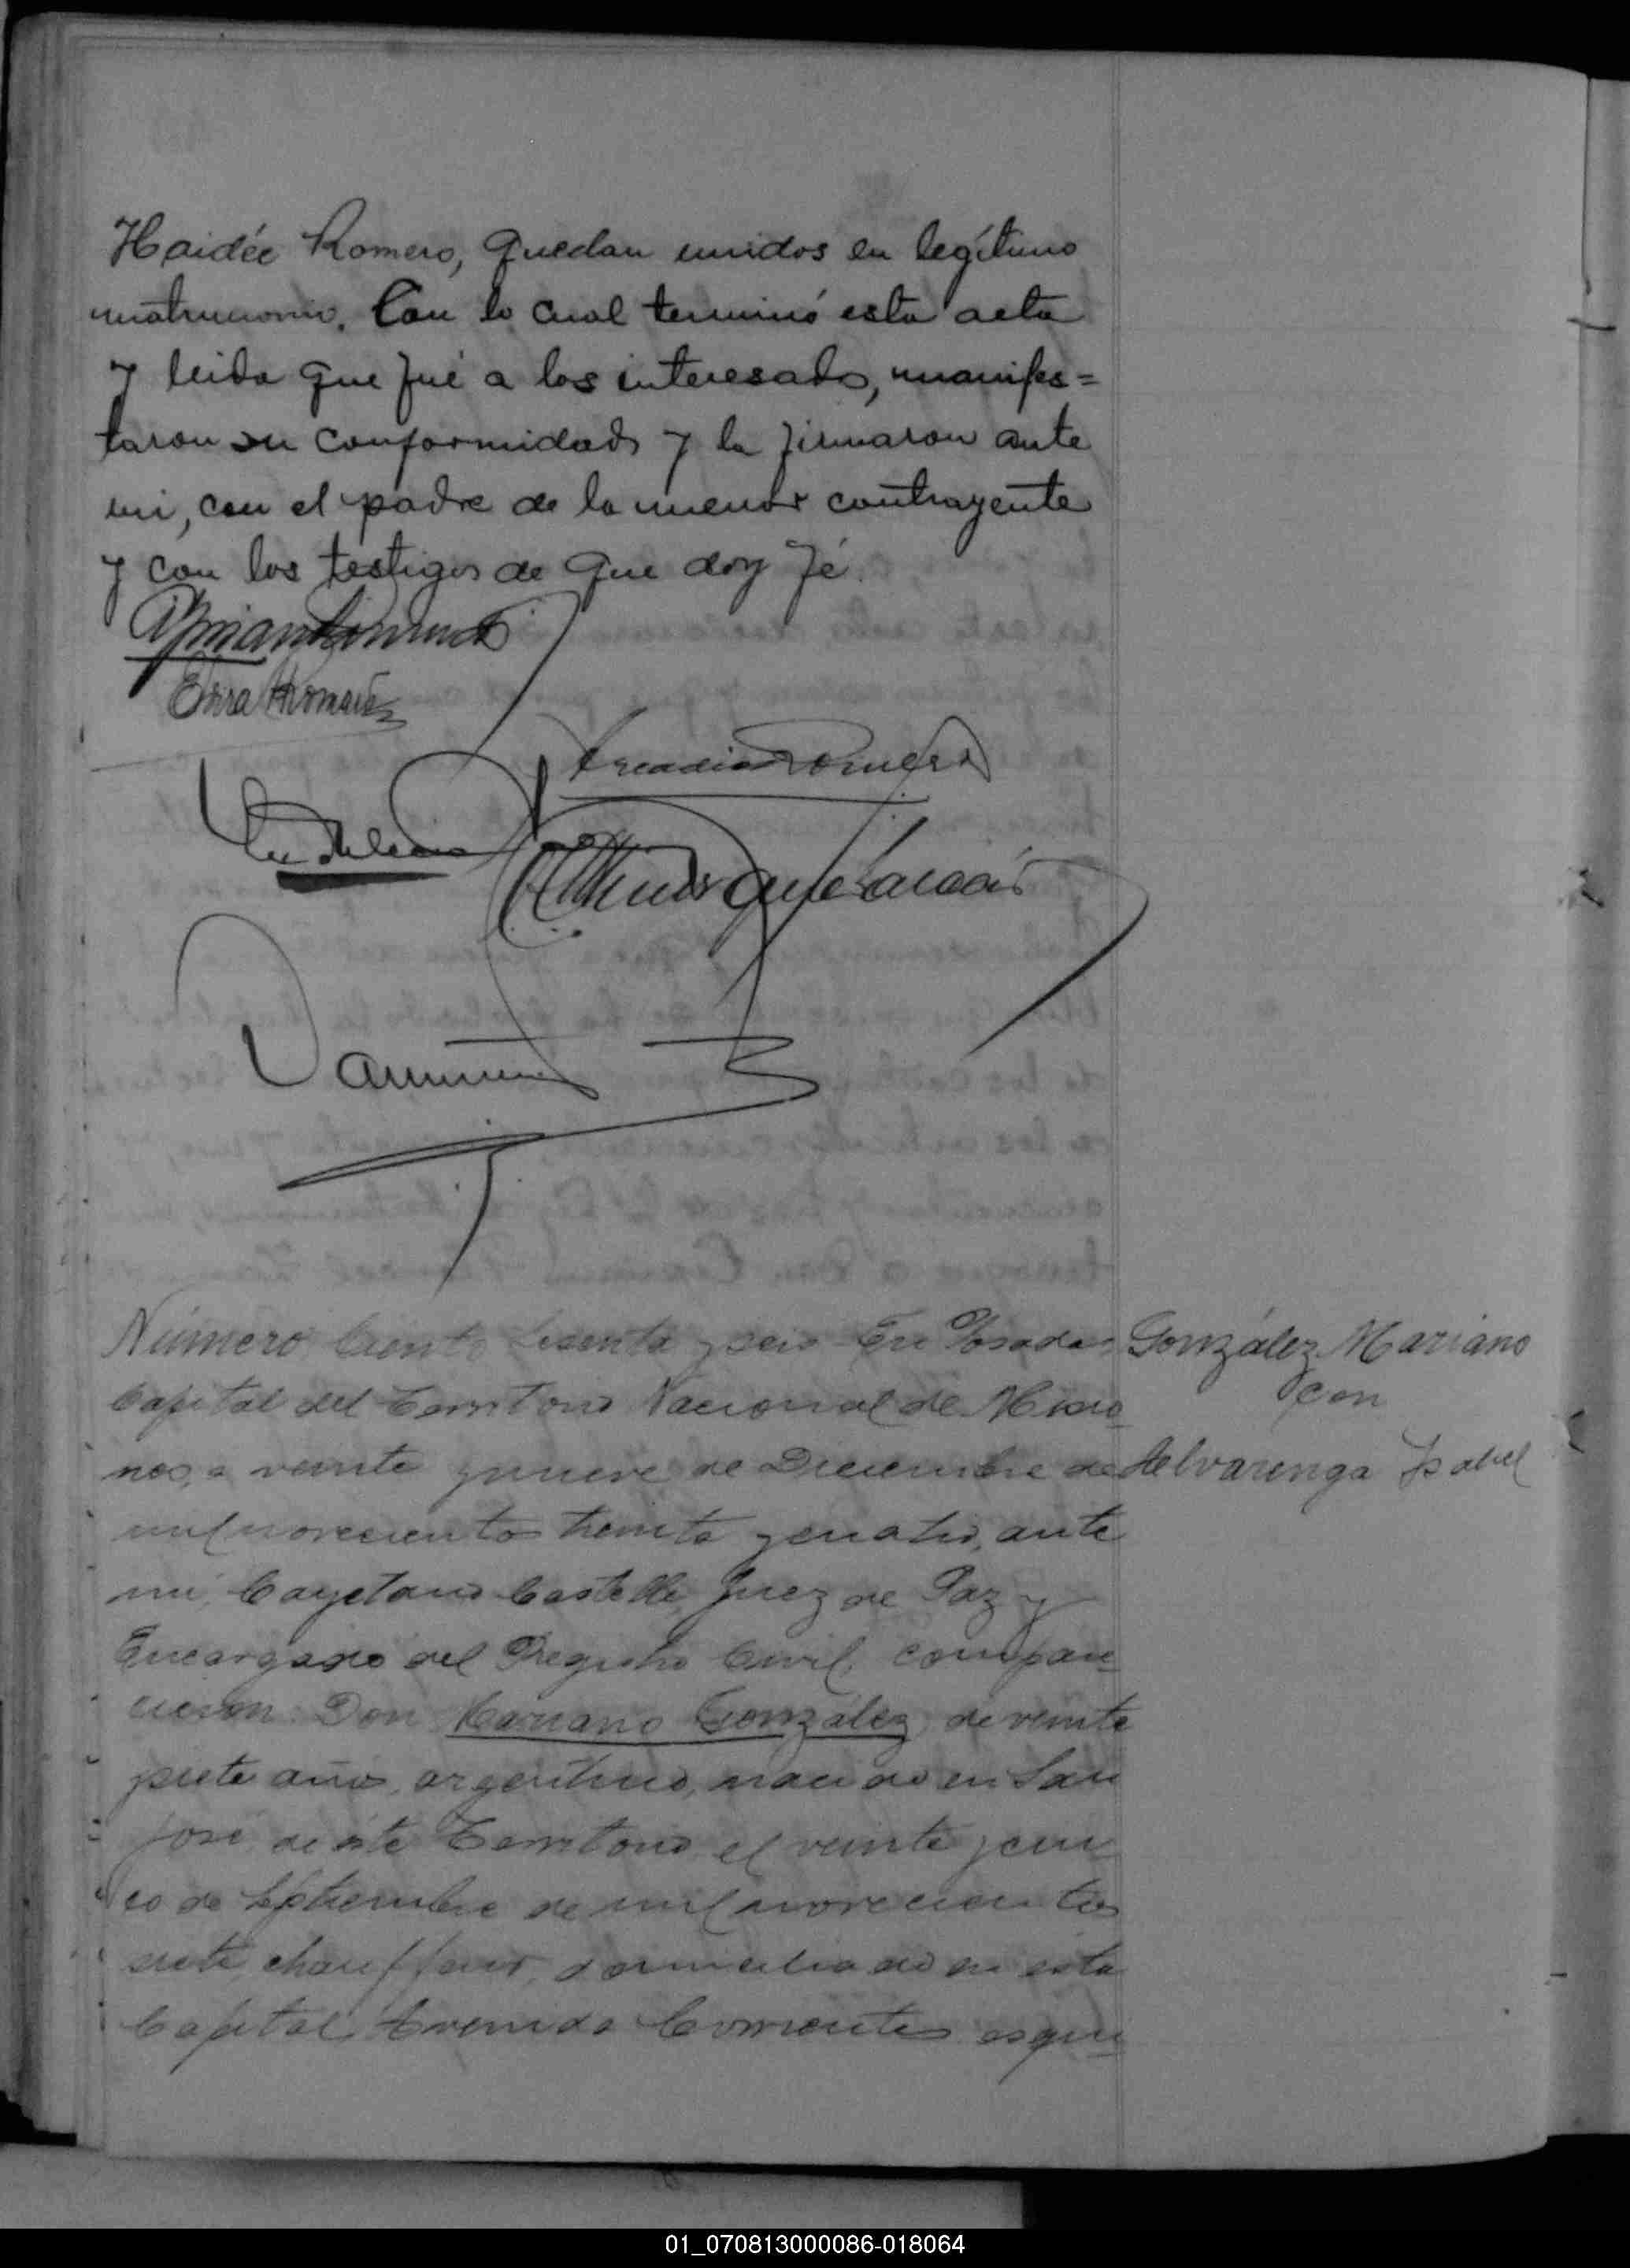 Haidée Romero, quedan unidos en legítimo
matrimonio. Con lo cual terminó esta acta
y leida que fué a los interesados, manifes=
taron su conformidad y la firmaron ante
mi, con el padre de la menor contrayente
y con los testigos de que doy fé.
Arcadio Romero
Número Ciento Sesenta y seis En Posadas,
Capital del Territorio Nacional de Misio-
nes, a veinte y nueve de Diciembre de
mil novecientos treinta y cuatro, ante
mi, Cayetano Castelli, Juez de Paz y
Encargado del Registro Civil, compare-
cieron: Don Mariano González, de veinte
y siete años, argentino, nacido en San
José, de éste Territorio el veinte y cin
co de Septiembre de mil novecientos
siete, chauffeur, domiciliado en esta
Capital, Avenida Corrientes esqui-
González Mariano
con
Alvarenga Isabel
01_070813000086-018064